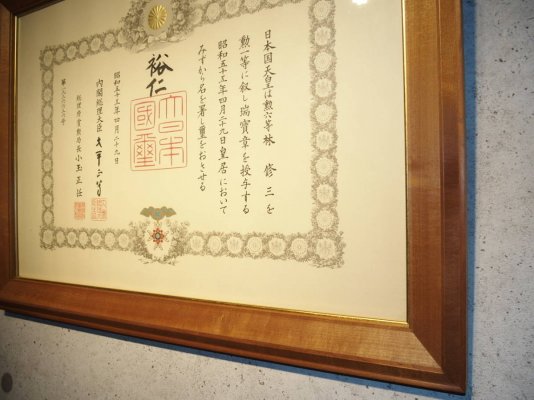 日本国天皇は勲六等林 修三を
勲一等に叙し瑞寶章を授与する
昭和五十三年四月二十九日皇居において
みずから名を署し璽をおさせる
裕仁
大日本
國璽
昭和五十三年四月二十九日
内閣総理大臣
総理府賞勲局長 小玉正任